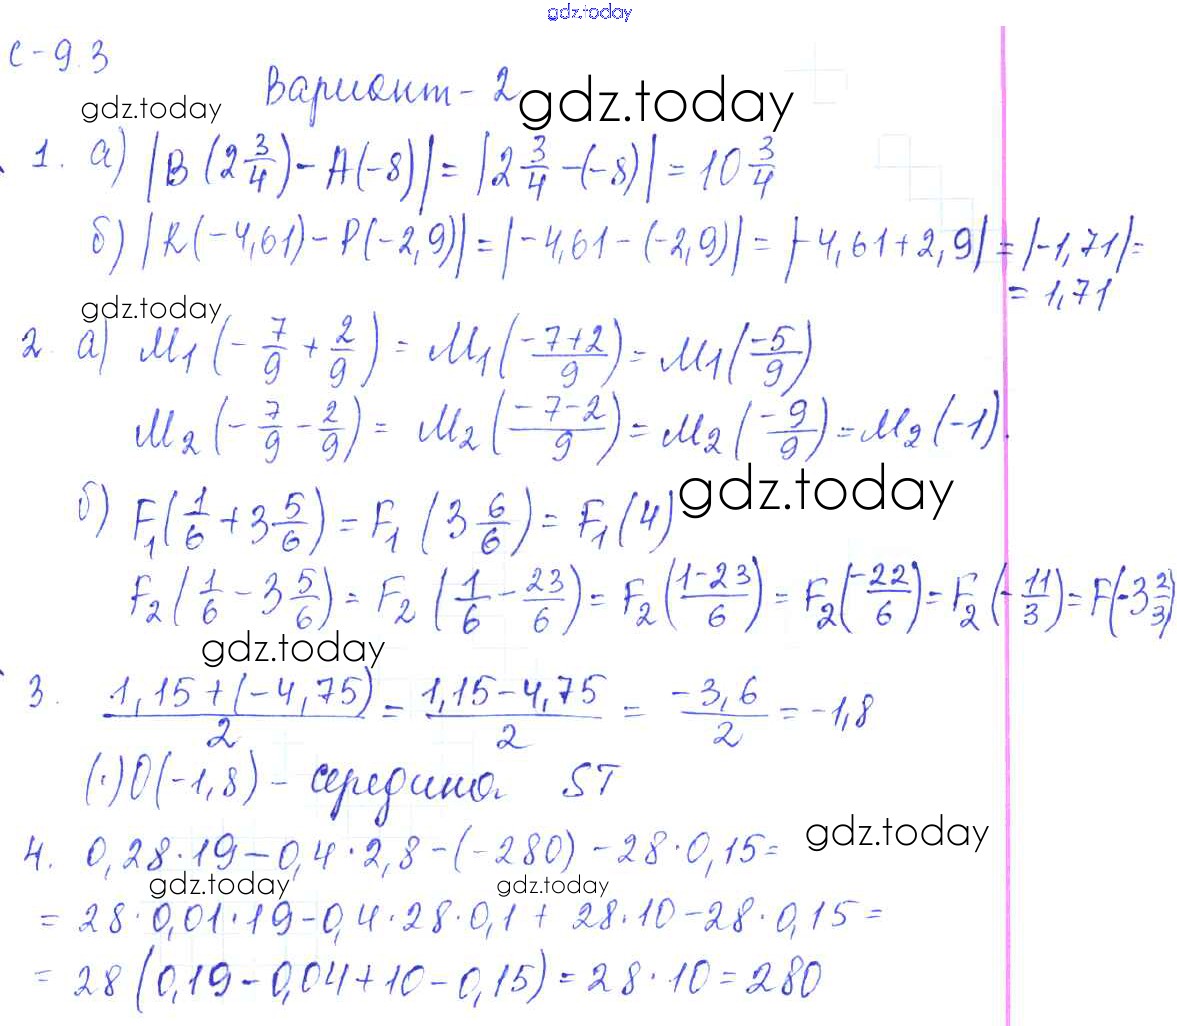 gdz.today
С-9.3
Вариант-2 gdz.today
gdz.today
1. а) |B(2 3/4) - A(-8)| = |2 3/4 - (-8)| = 10 3/4
б) |R(-4,61) - P(-2,9)| = |-4,61 - (-2,9)| = |-4,61 + 2,9| = |-1,71| =
= 1,71
gdz.today
2. а) M₁(-7/9 + 2/9) = M₁((-7+2)/9) = M₁(-5/9)
M₂(-7/9 - 2/9) = M₂((-7-2)/9) = M₂(-9/9) = M₂(-1).
б) F₁(1/6 + 3 5/6) = F₁(3 6/6) = F₁(4) gdz.today
F₂(1/6 - 3 5/6) = F₂(1/6 - 23/6) = F₂((1-23)/6) = F₂(-22/6) = F₂(-11/3) = F(-3 2/3)
gdz.today
3. (1,15+(-4,75))/2 = (1,15-4,75)/2 = -3,6/2 = -1,8
(·)O(-1,8) - середина ST
gdz.today
4. 0,28·19 - 0,4·2,8 - (-280) - 28·0,15 =
gdz.today gdz.today
= 28·0,01·19 - 0,4·28·0,1 + 28·10 - 28·0,15 =
= 28(0,19 - 0,04 + 10 - 0,15) = 28·10 = 280